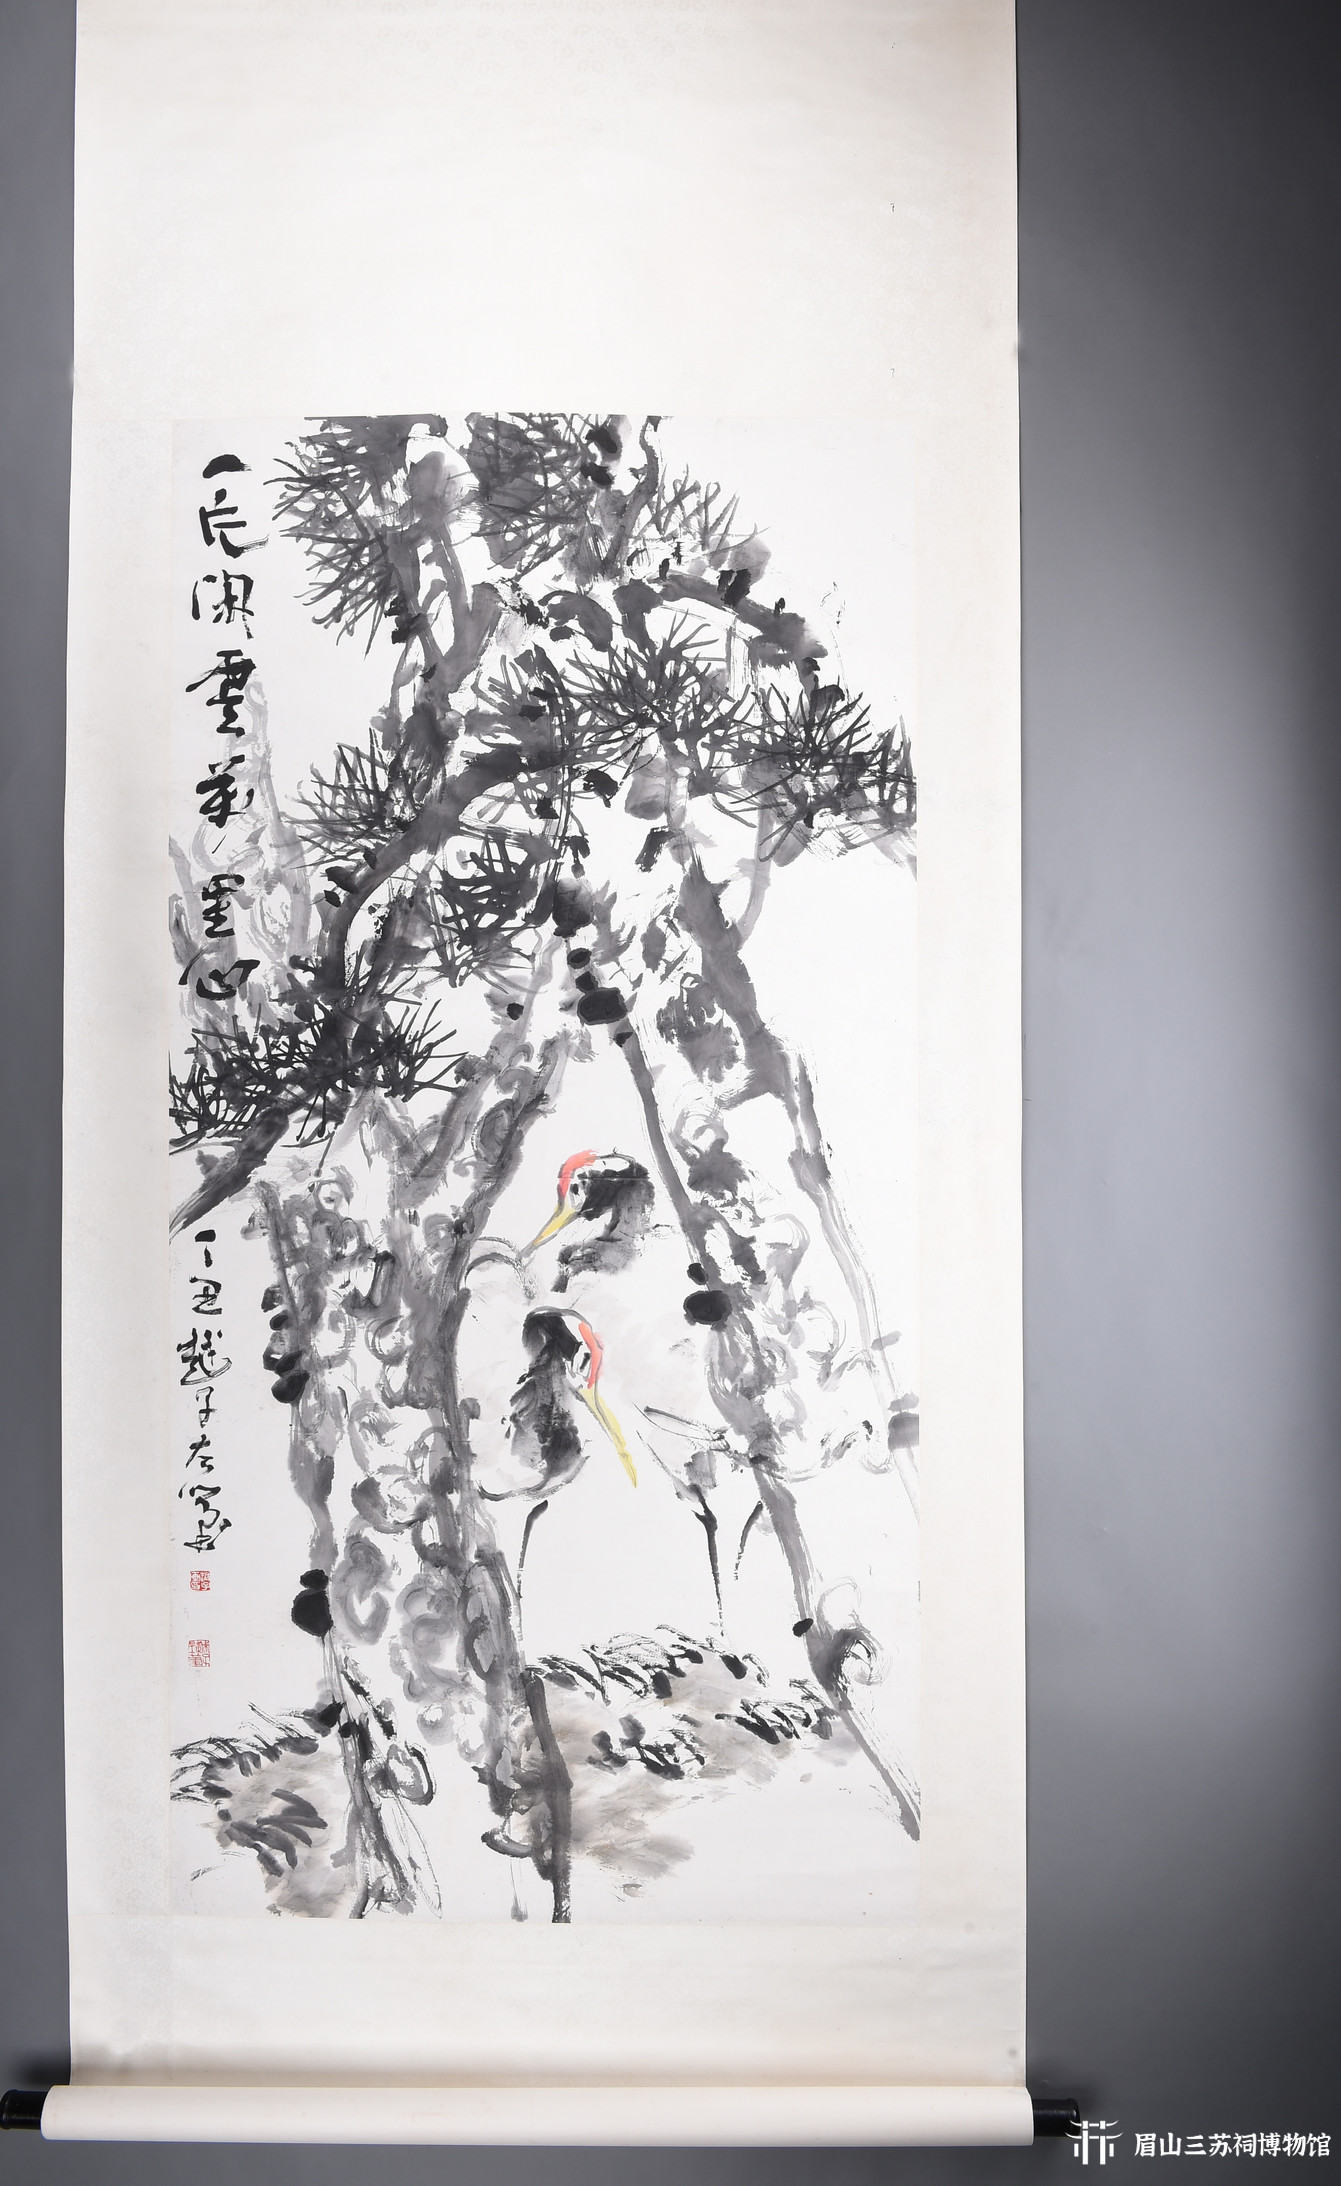 一片闲云万里心
丁丑赵子左写
眉山三苏祠博物馆